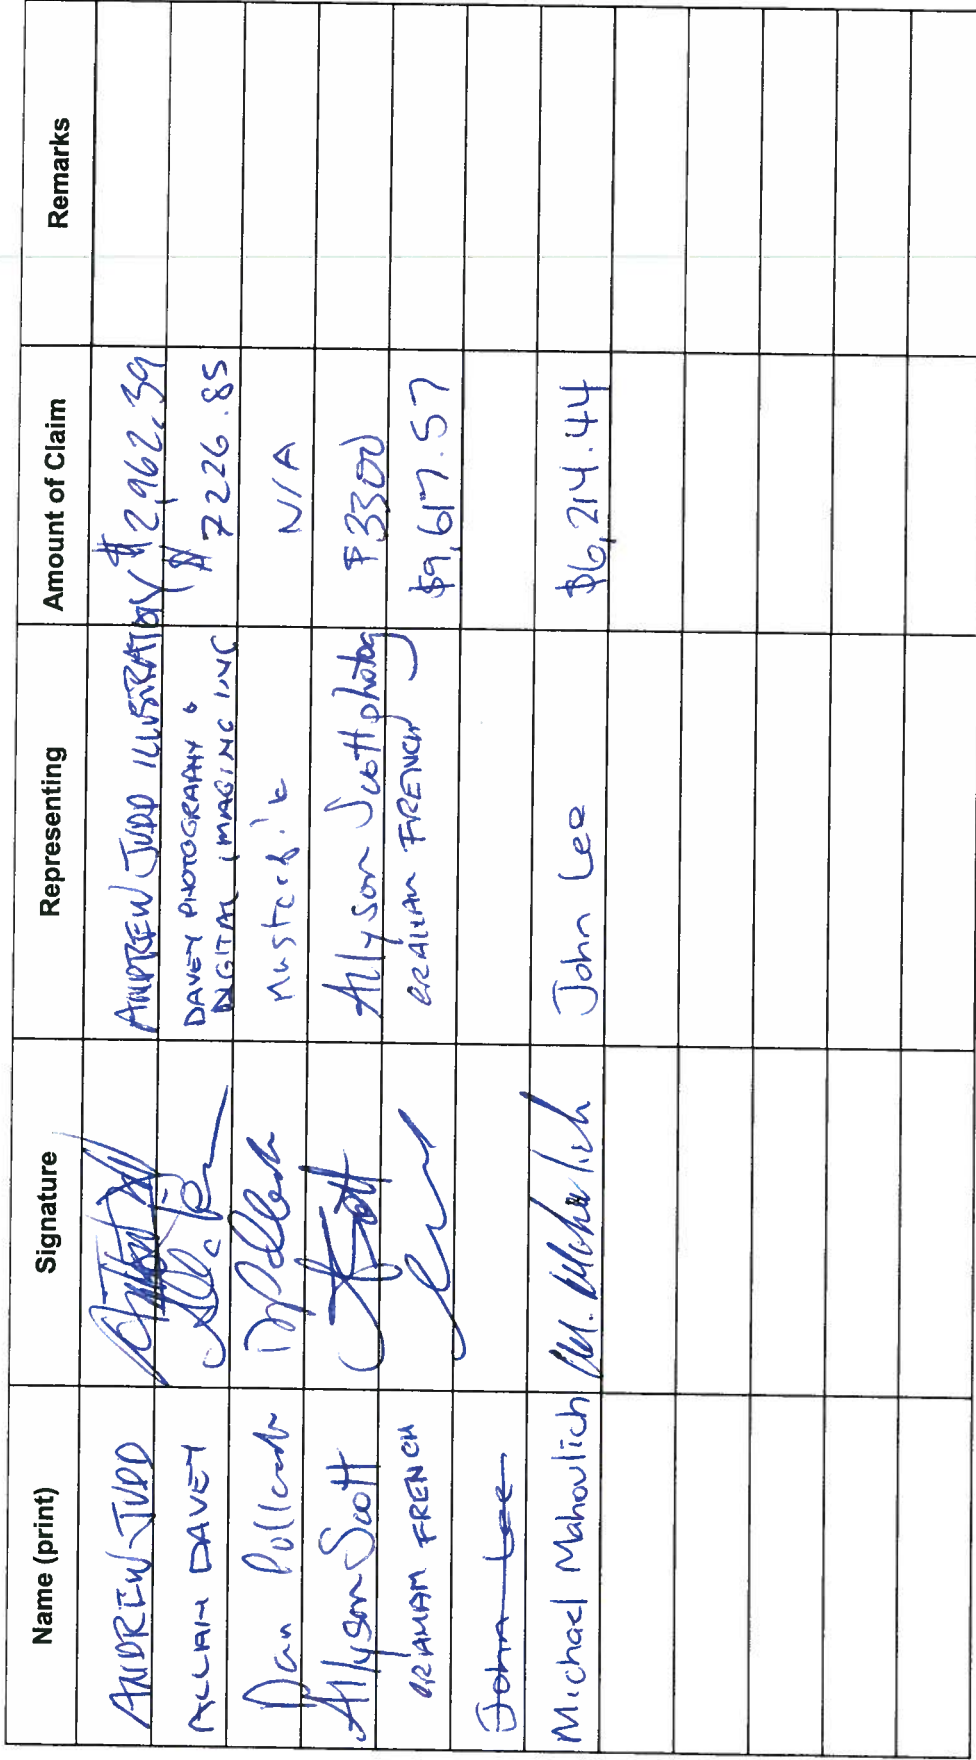 Name (print) Signature Representing Amount of Claim Remarks
ANDREW JUDD ANDREW JUDD ILLUSTRATION $2,962.39
ALLAIN DAVEY DAVEY PHOTOGRAPHY & $7226.85
DIGITAL IMAGING INC
Dan Pollack DPollack N/A
Allyson Scott AScott Allyson Scott photog $3300
GRAHAM FRENCH GRAHAM FRENCH $9,617.57
John Lee
Michael Mahovlich M. Mahovlich John Lee $6,214.44